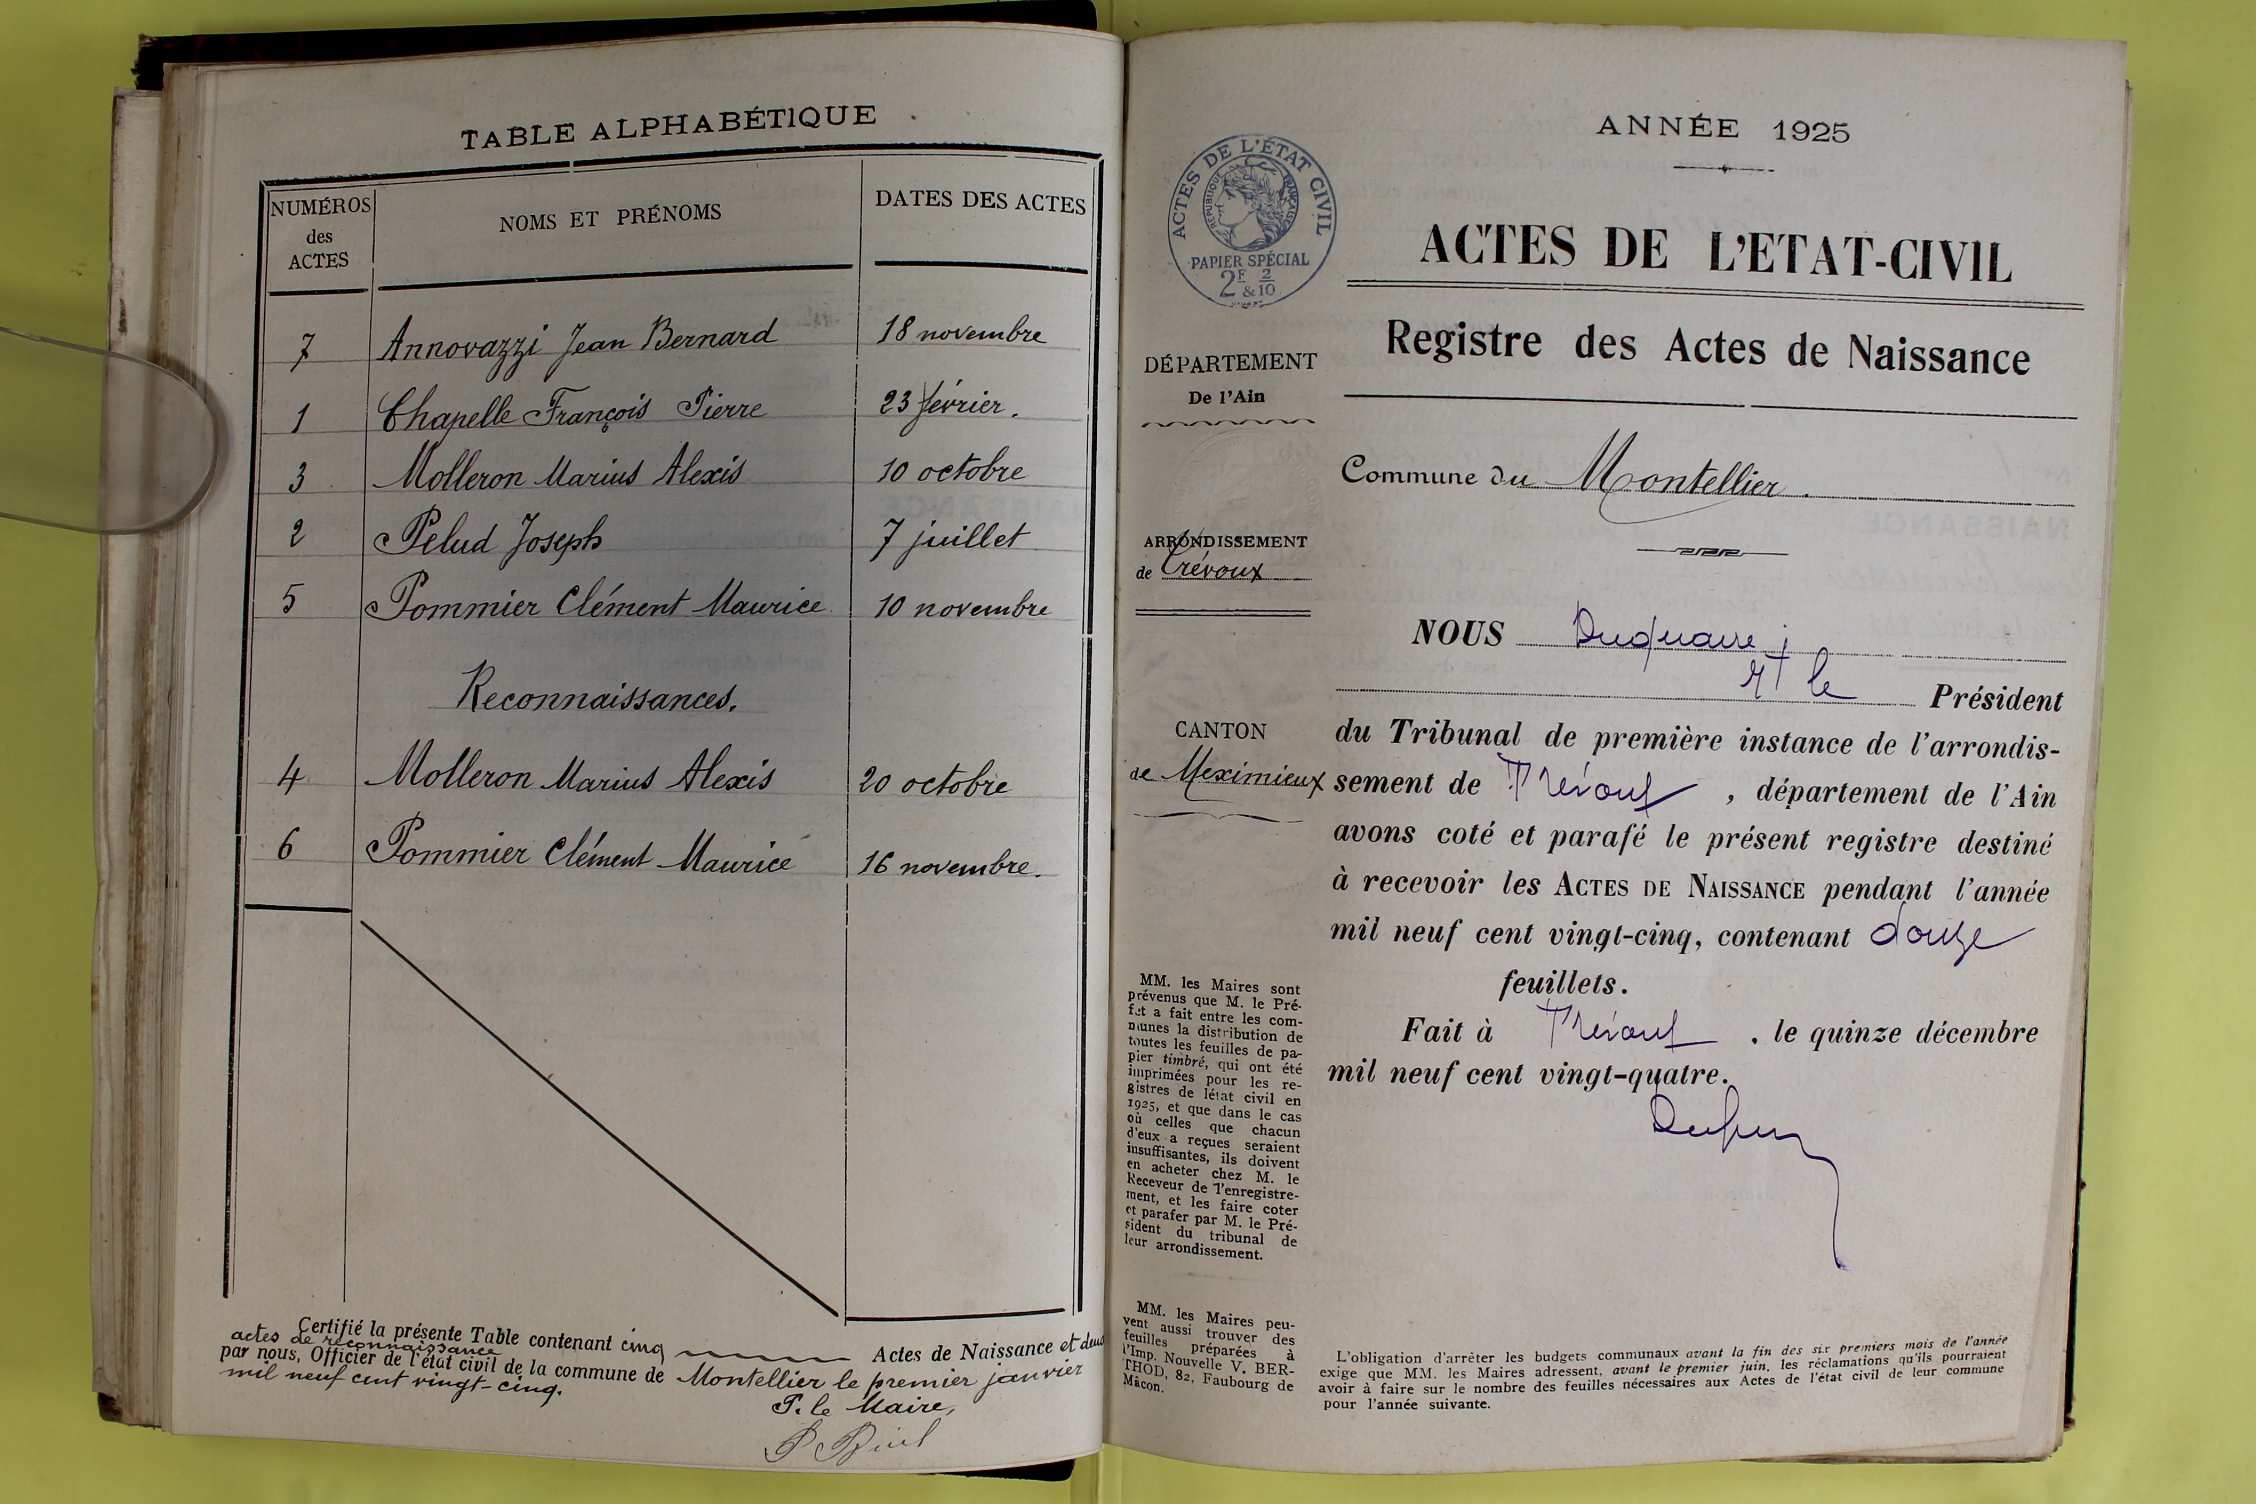 TABLE ALPHABÉTIQUE
NUMÉROS
des
ACTES
NOMS ET PRÉNOMS
DATES DES ACTES
7 Annovazzi Jean Bernard 18 novembre
1 Chapelle François Pierre 23 février.
3 Molleron Marius Alexis 10 octobre
2 Pelud Joseph 7 juillet
5 Pommier Clément Maurice 10 novembre
Reconnaissances.
4 Molleron Marius Alexis 20 octobre
6 Pommier Clément Maurice 16 novembre.
Certifié la présente Table contenant cinq Actes de Naissance et deux
actes de reconnaissance
par nous, Officier de l'état civil de la commune de Montellier le premier janvier
mil neuf cent vingt-cinq.
P. le Maire,
ANNÉE 1925
ACTES DE L'ÉTAT CIVIL
RÉPUBLIQUE FRANÇAISE
PAPIER SPÉCIAL
2F & 2/10
ACTES DE L'ETAT-CIVIL
Registre des Actes de Naissance
DÉPARTEMENT
De l'Ain
Commune du Montellier.
ARRONDISSEMENT
de Trévoux
CANTON
de Meximieux
NOUS Duquaire
le Président
du Tribunal de première instance de l'arrondis-
sement de Trévoux, département de l'Ain
avons coté et parafé le présent registre destiné
à recevoir les ACTES DE NAISSANCE pendant l'année
mil neuf cent vingt-cinq, contenant douze
feuillets.
Fait à Trévoux, le quinze décembre
mil neuf cent vingt-quatre.
MM. les Maires sont
prévenus que M. le Pré-
fet a fait entre les com-
munes la distribution de
toutes les feuilles de pa-
pier timbré, qui ont été
imprimées pour les re-
gistres de létat civil en
1925, et que dans le cas
où celles que chacun
d'eux a reçues seraient
insuffisantes, ils doivent
en acheter chez M. le
Receveur de l'enregistre-
ment, et les faire coter
et parafer par M. le Pré-
sident du tribunal de
leur arrondissement.
MM. les Maires peu-
vent aussi trouver des
feuilles préparées à
l'Imp. Nouvelle V. BER-
THOD, 82, Faubourg de
Mâcon.
L'obligation d'arrêter les budgets communaux avant la fin des six premiers mois de l'année
exige que MM. les Maires adressent, avant le premier juin, les réclamations qu'ils pourraient
avoir à faire sur le nombre des feuilles nécessaires aux Actes de l'état civil de leur commune
pour l'année suivante.